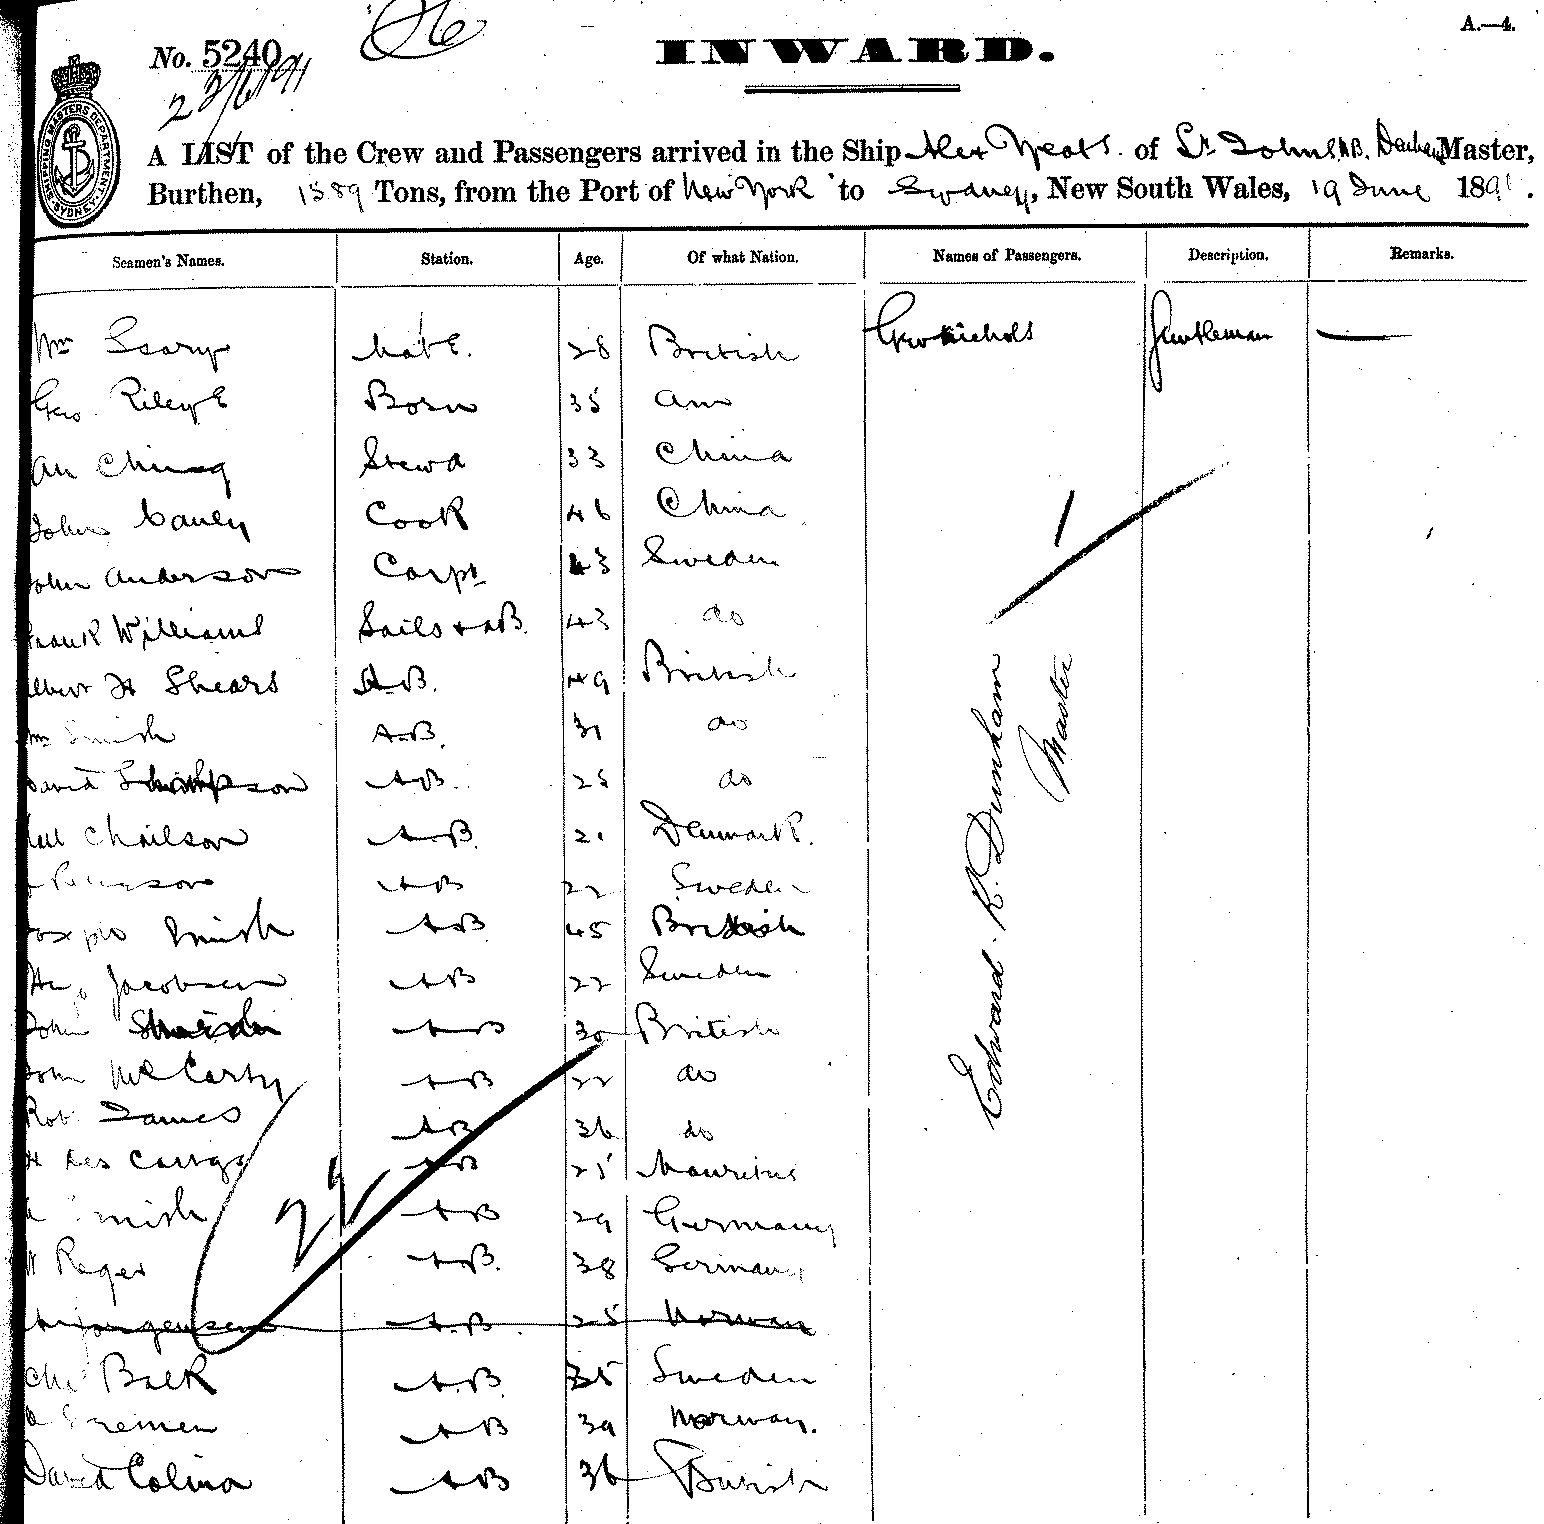 A.—4.
No. 5240
INWARD.
SHIPPING MASTERS DEPARTMENT SYDNEY
A LIST of the Crew and Passengers arrived in the Ship Alex Yeats of St Johns NB. Master,
Burthen, 1589 Tons, from the Port of New York to Sydney, New South Wales, 19 June 1891.
Seamen's Names. Station. Age. Of what Nation. Names of Passengers. Description. Remarks.
Wm Mate. 28 British Geo Nichols Gentleman —
Geo. Riley Bosn 35 Am
Ah Ching Stewd 33 China
John Cauley Cook 46 China
John Anderson Carpt 43 Sweden
Frank Williams Sails & AB. 43 do
Albert H Shears A.B. 49 British
Wm Smith A.B. 31 do
David AB. 25 do
A.B. 21 Denmark.
AB 22 Sweden
Joseph Smith AB 45 British
Hy Jacobsen AB 22 Sweden
John AB 30 British
John McCarty AB 22 do
Rob James AB 36 do
H des AB 25 Mauritius
Smith AB 29 Germany
Reger AB. 38 Germany
Jorgensen A.B. 25 Norway
Balk A.B. 35 Sweden
AB 39 Norway.
David Colina AB 36 British
1
Edward. R. Dunham
Master